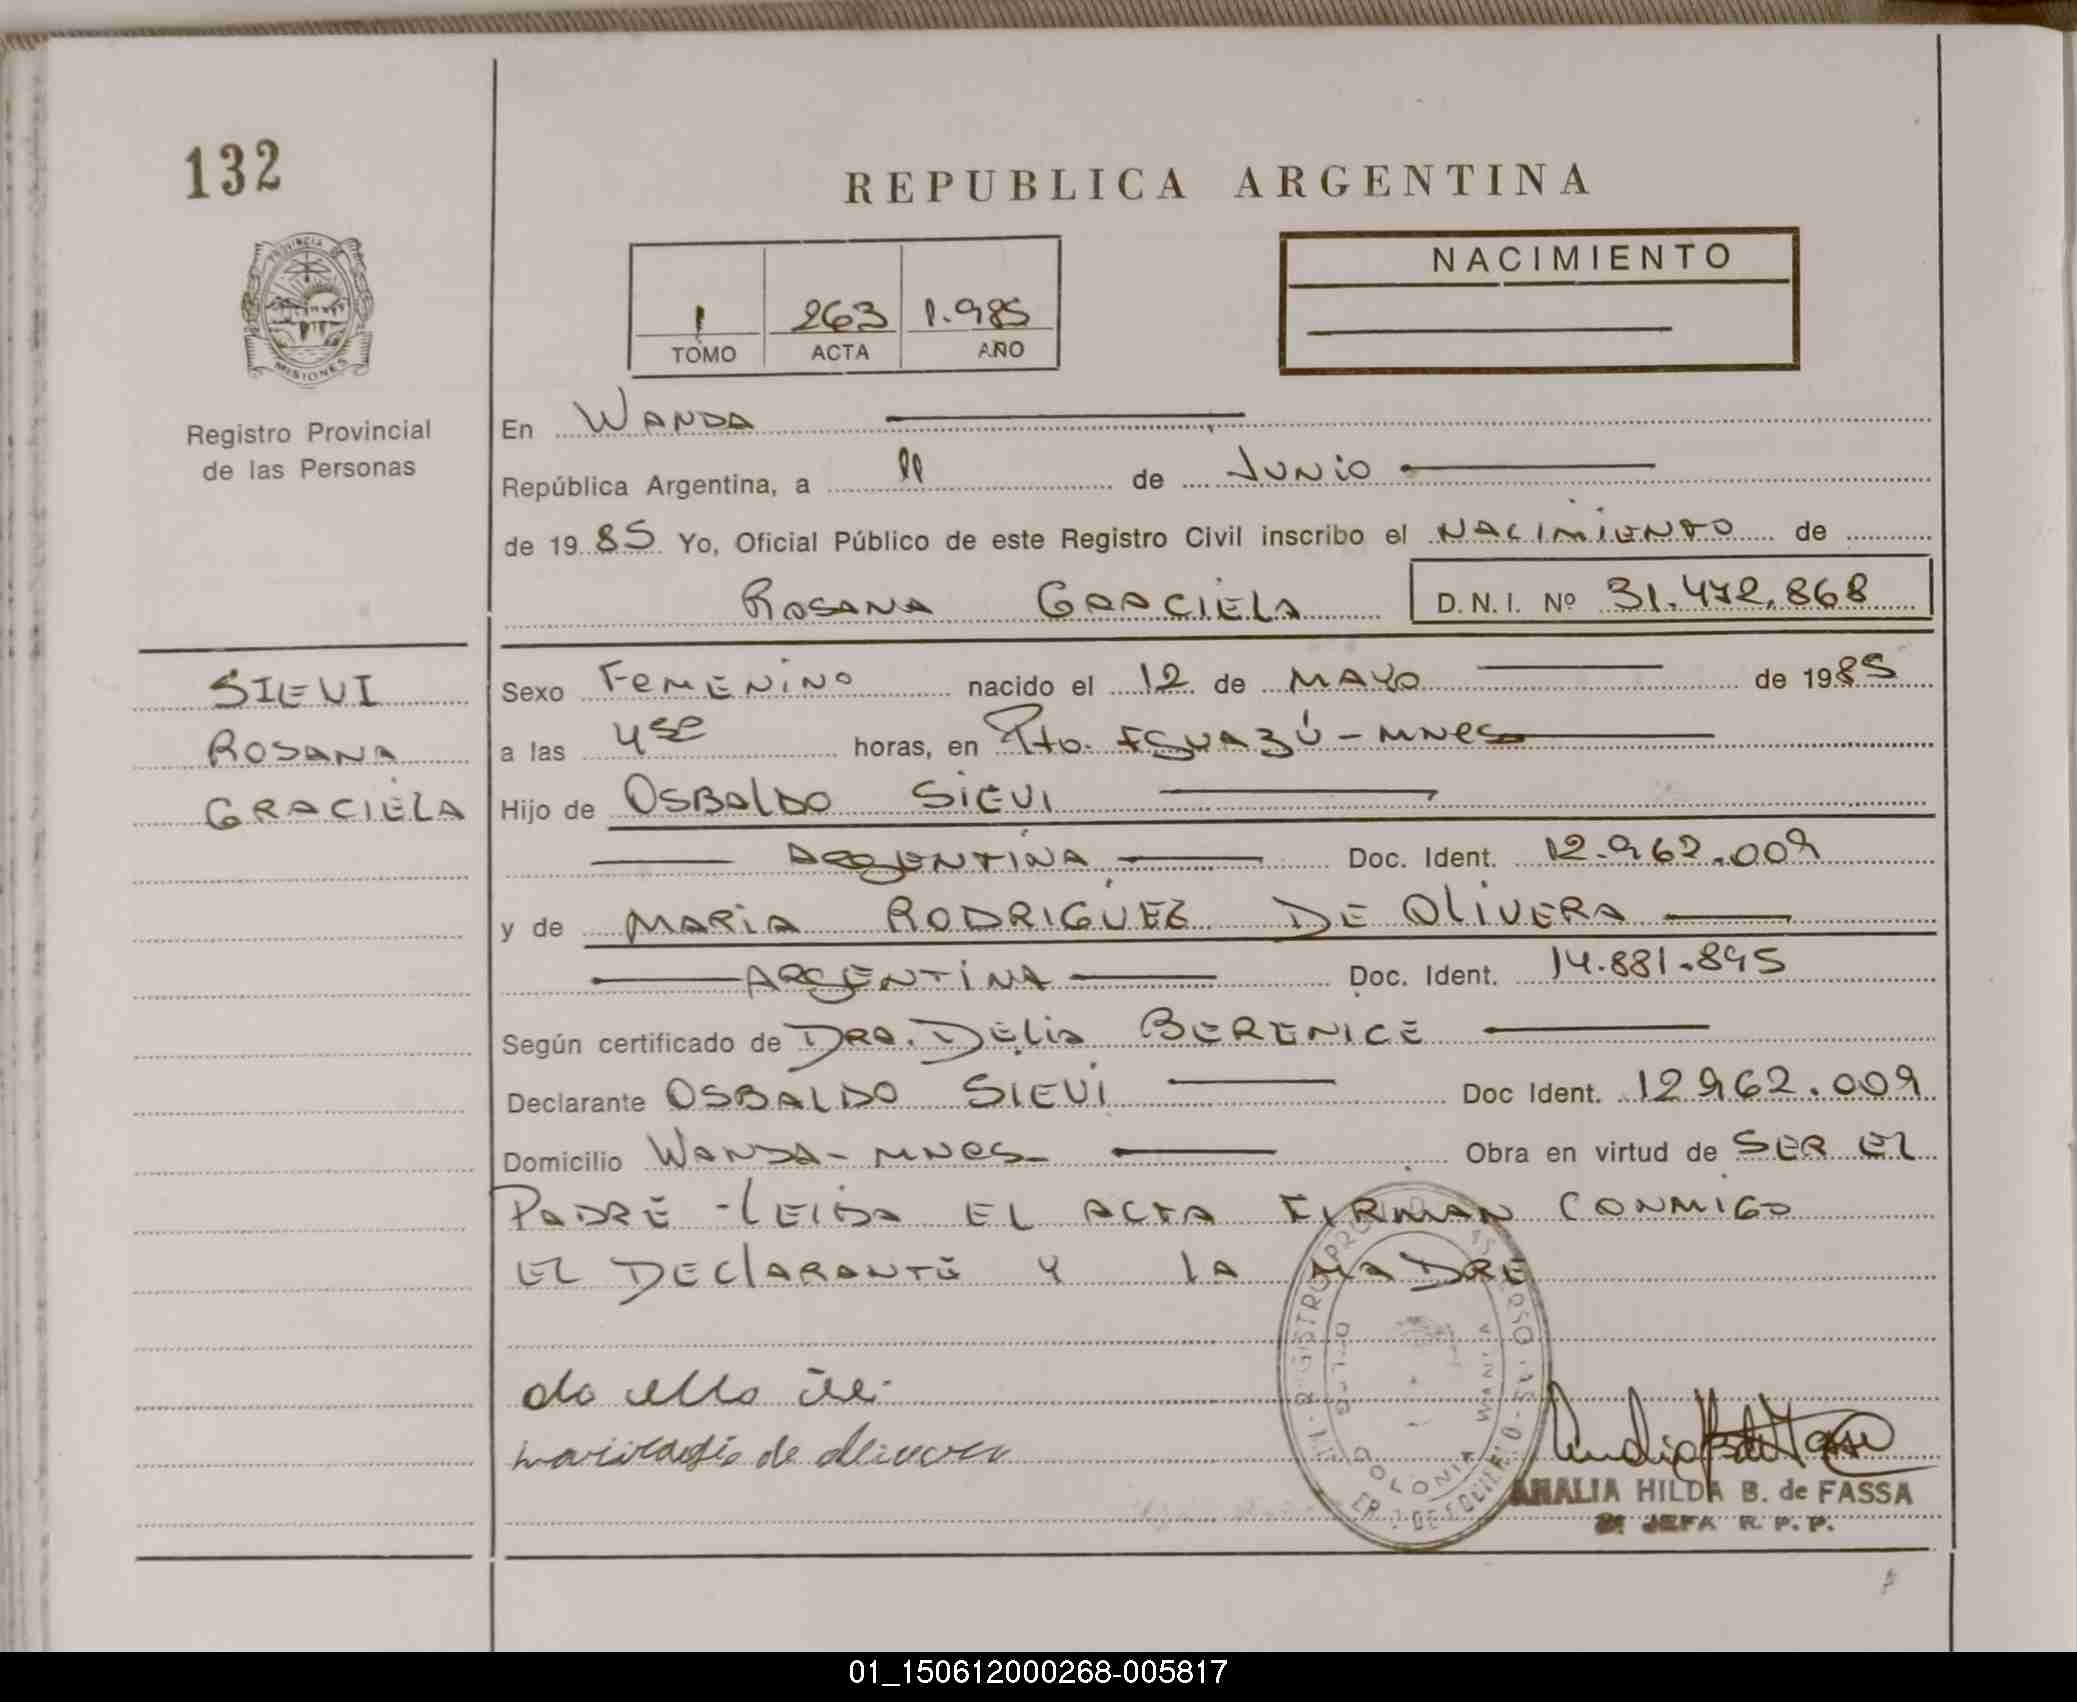 132
REPUBLICA ARGENTINA
PROVINCIA DE
MISIONES
Registro Provincial
de las Personas
1 263 1.985
TOMO ACTA AÑO
NACIMIENTO
En WANDA
República Argentina, a 11 de JUNIO
de 1985 Yo, Oficial Público de este Registro Civil inscribo el NACIMIENTO de
ROSANA GRACIELA D.N.I. Nº 31.472.868
SIEVI
ROSANA
GRACIELA
Sexo FEMENINO nacido el 12 de MAYO de 1985
a las 4 horas, en Pto. IGUAZÚ - MNES
Hijo de OSBALDO SIEVI
ARGENTINA Doc. Ident. 12.962.009
y de MARIA RODRIGUEZ DE OLIVERA
ARGENTINA Doc. Ident. 14.881.895
Según certificado de DRA. DELIA BERENICE
Declarante OSBALDO SIEVI Doc Ident. 12962.009
Domicilio WANDA - MNES - Obra en virtud de SER EL
PADRE - LEIDA EL ACTA FIRMAN CONMIGO
EL DECLARANTE Y LA MADRE
COLONIA WANDA
de
AMALIA HILDA B. de FASSA
JEFA R. P. P.
01_150612000268-005817